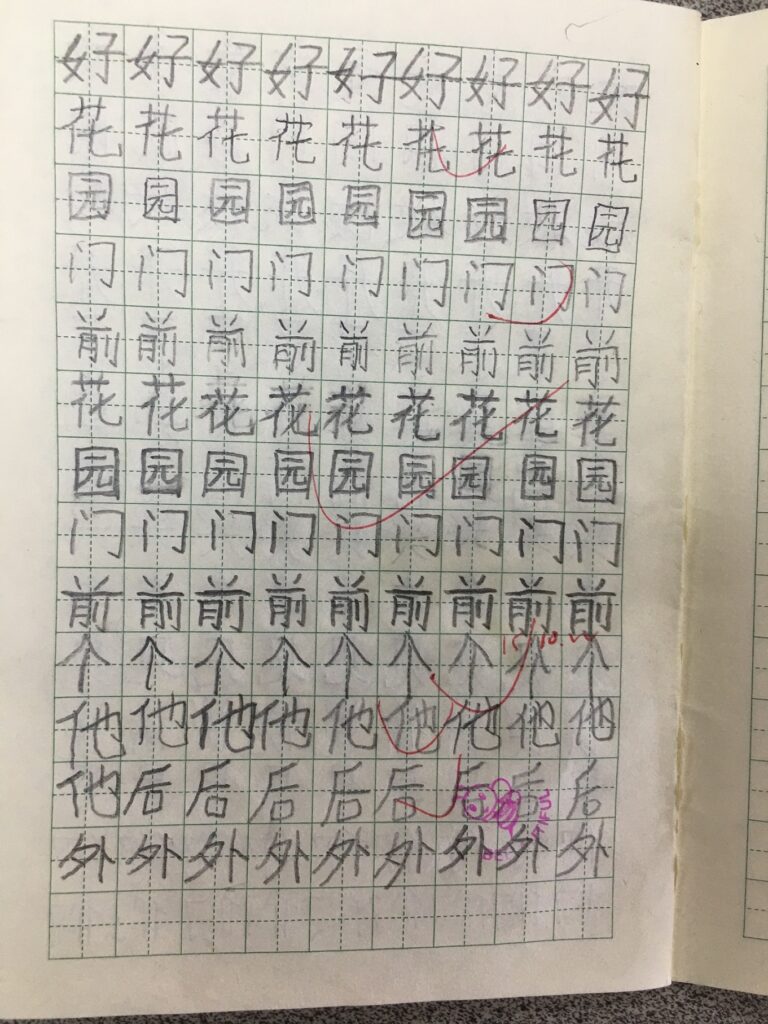 好好好好好好好好好
花花花花花花花花花
园园园园园园园园园
门门门门门门门门门
前前前前前前前前前
花花花花花花花花花
园园园园园园园园园
门门门门门门门门门
前前前前前前前前前
个个个个个个个个个
他他他他他他他他他
他后后后后后后后后
外外外外外外外外外